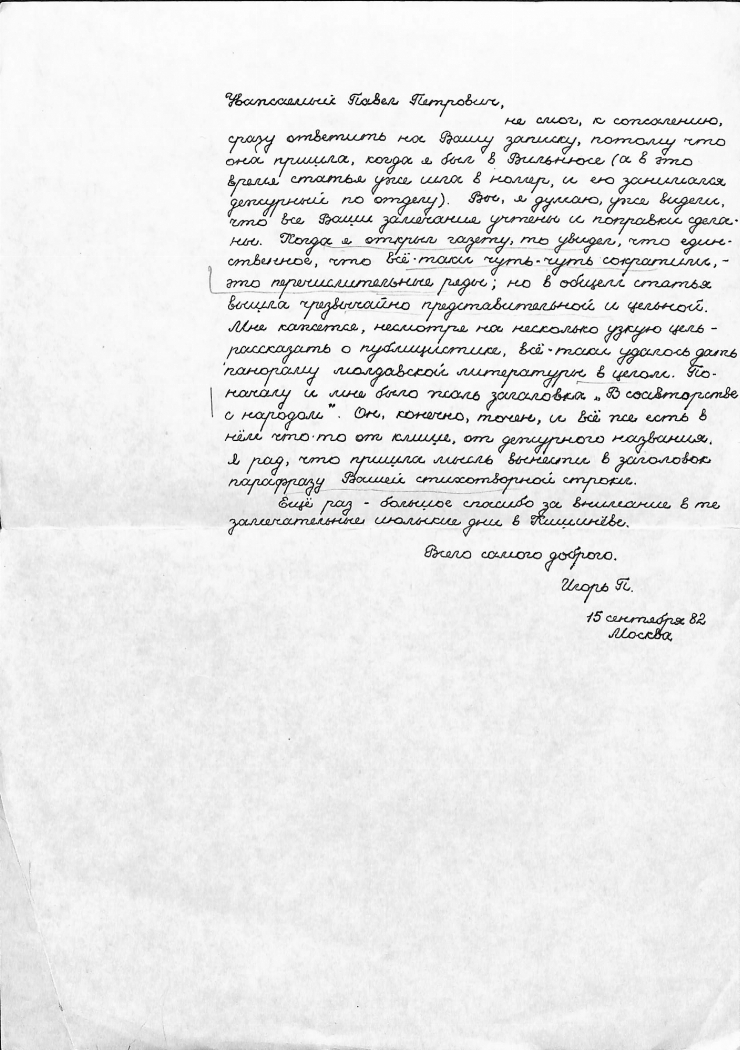 Уважаемый Павел Петрович,
не смог, к сожалению,
сразу ответить на Вашу записку, потому что
она пришла, когда я был в Вильнюсе (а в это
время статья уже шла в номер, и ею занимался
дежурный по отделу). Вы, я думаю, уже видели,
что все Ваши замечания учтены и поправки сдела-
ны. Когда я открыл газету, то увидел, что един-
ственное, что всё-таки чуть-чуть сократили, -
это перечислительные ряды; но в общем статья
вышла чрезвычайно представительной и цельной.
Мне кажется, несмотря на несколько узкую цель -
рассказать о публицистике, всё-таки удалось дать
панораму молдавской литературы в целом. По-
началу и мне было жаль заголовка „В соавторстве
с народом". Он, конечно, точен, и всё же есть в
нём что-то от клише, от дежурного названия.
Я рад, что пришла мысль вынести в заголовок
парафразу Вашей стихотворной строки.
Ещё раз - большое спасибо за внимание в те
замечательные июльские дни в Кишинёве.
Всего самого доброго.
Игорь П.
15 сентября 82
Москва